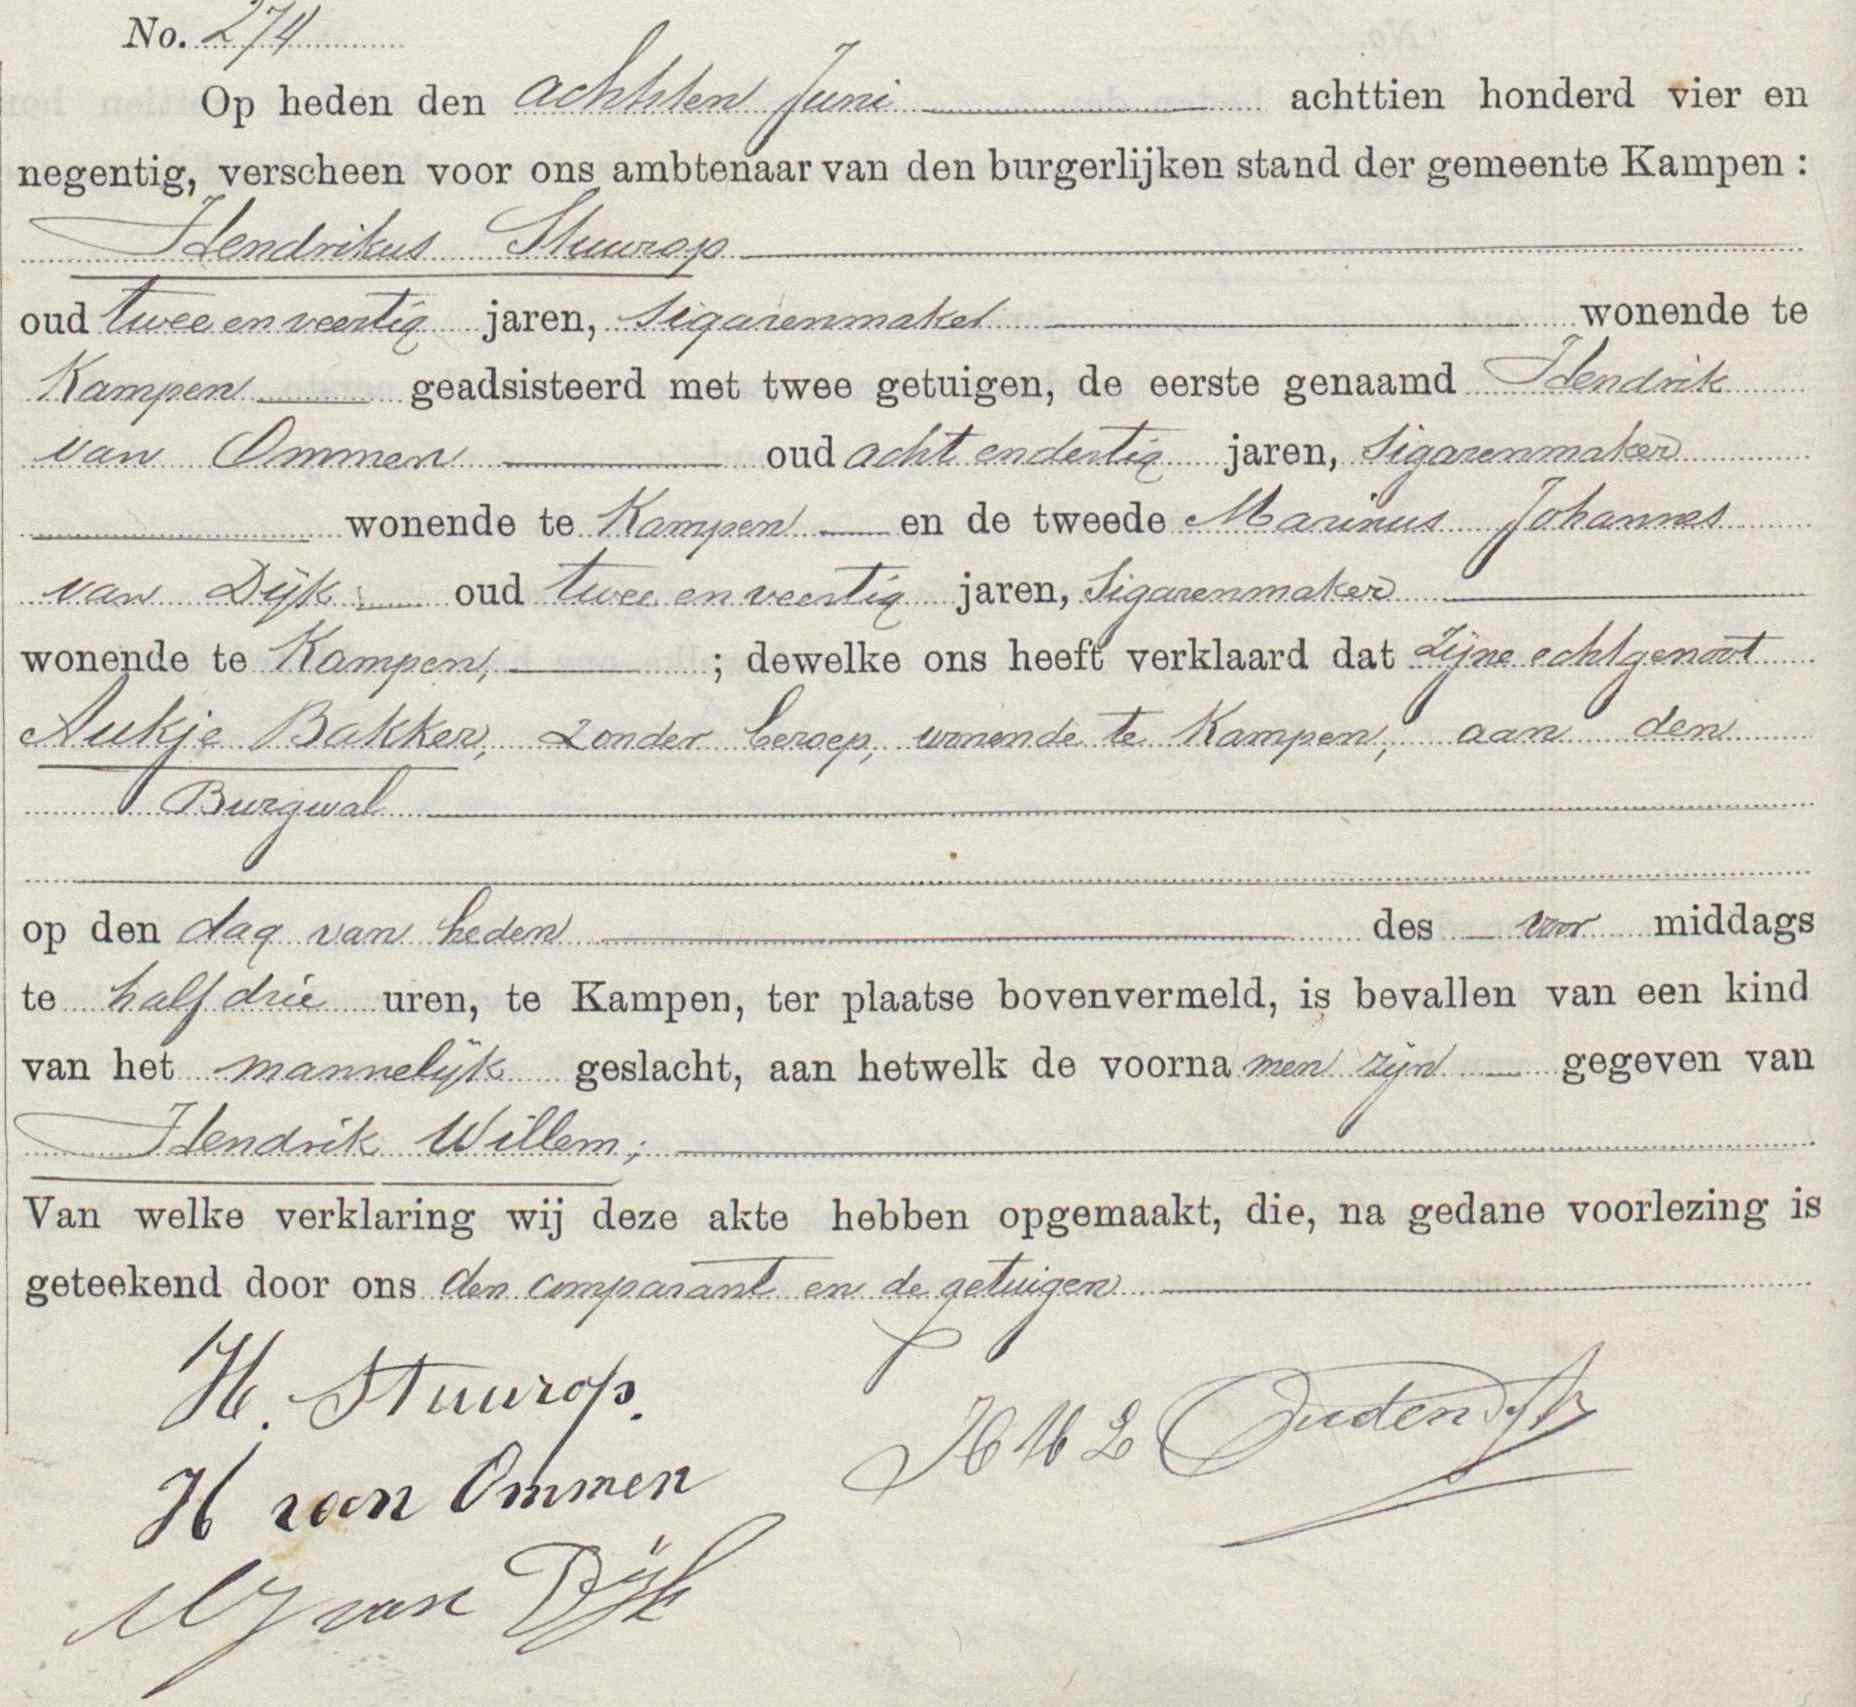 No. 274
Op heden den achtsten Juni achttien honderd vier en
negentig, verscheen voor ons ambtenaar van den burgerlijken stand der gemeente Kampen :
Hendrikus Stuurop
oud twee en veertig jaren, sigarenmaker wonende te
Kampen geadsisteerd met twee getuigen, de eerste genaamd Hendrik
van Ommen oud acht en dertig jaren, sigarenmaker
wonende te Kampen en de tweede Marinus Johannes
van Dijk oud twee en veertig jaren, sigarenmaker
wonende te Kampen, ; dewelke ons heeft verklaard dat zijne echtgenoot
Aukje Bakker, zonder beroep, wonende te Kampen, aan den
Burgwal
op den dag van heden des voor middags
te half drie uren, te Kampen, ter plaatse bovenvermeld, is bevallen van een kind
van het mannelijk geslacht, aan hetwelk de voorna men zijn gegeven van
Hendrik Willem;
Van welke verklaring wij deze akte hebben opgemaakt, die, na gedane voorlezing is
geteekend door ons den comparant en de getuigen
H. Stuurop.
Oudendijk
H van Ommen
MJ van Dijk